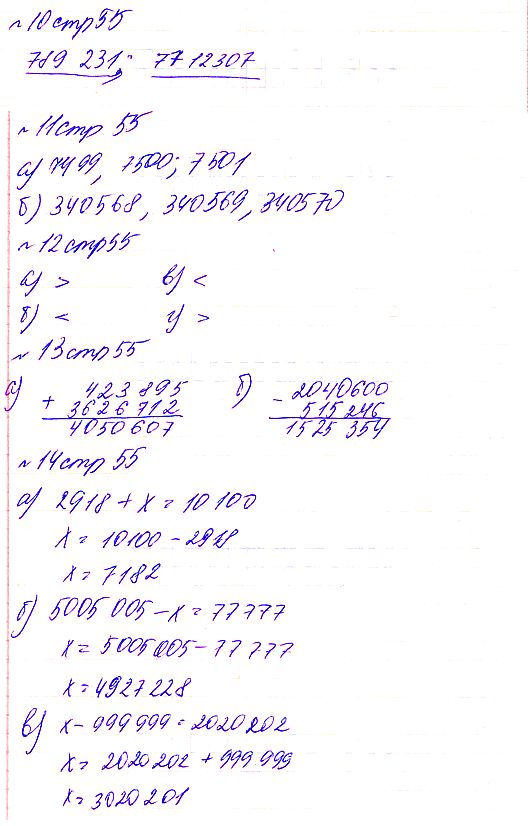 №10 стр 55
789 231; 7712307
№11 стр 55
а) 7499, 7500; 7501
б) 340568, 340569, 340570
№12 стр 55
а) > в) <
б) < г) >
№13 стр 55
а) + 423 895 б) - 2040600
3626 712 515 246
4050 607 1525 354
№14 стр 55
а) 2918 + х = 10 100
х = 10100 - 2918
х = 7182
б) 5005 005 - х = 77777
х = 5005 005 - 77 777
х = 4927228
в) х - 999 999 = 2020 202
х = 2020 202 + 999 999
х = 3020 201